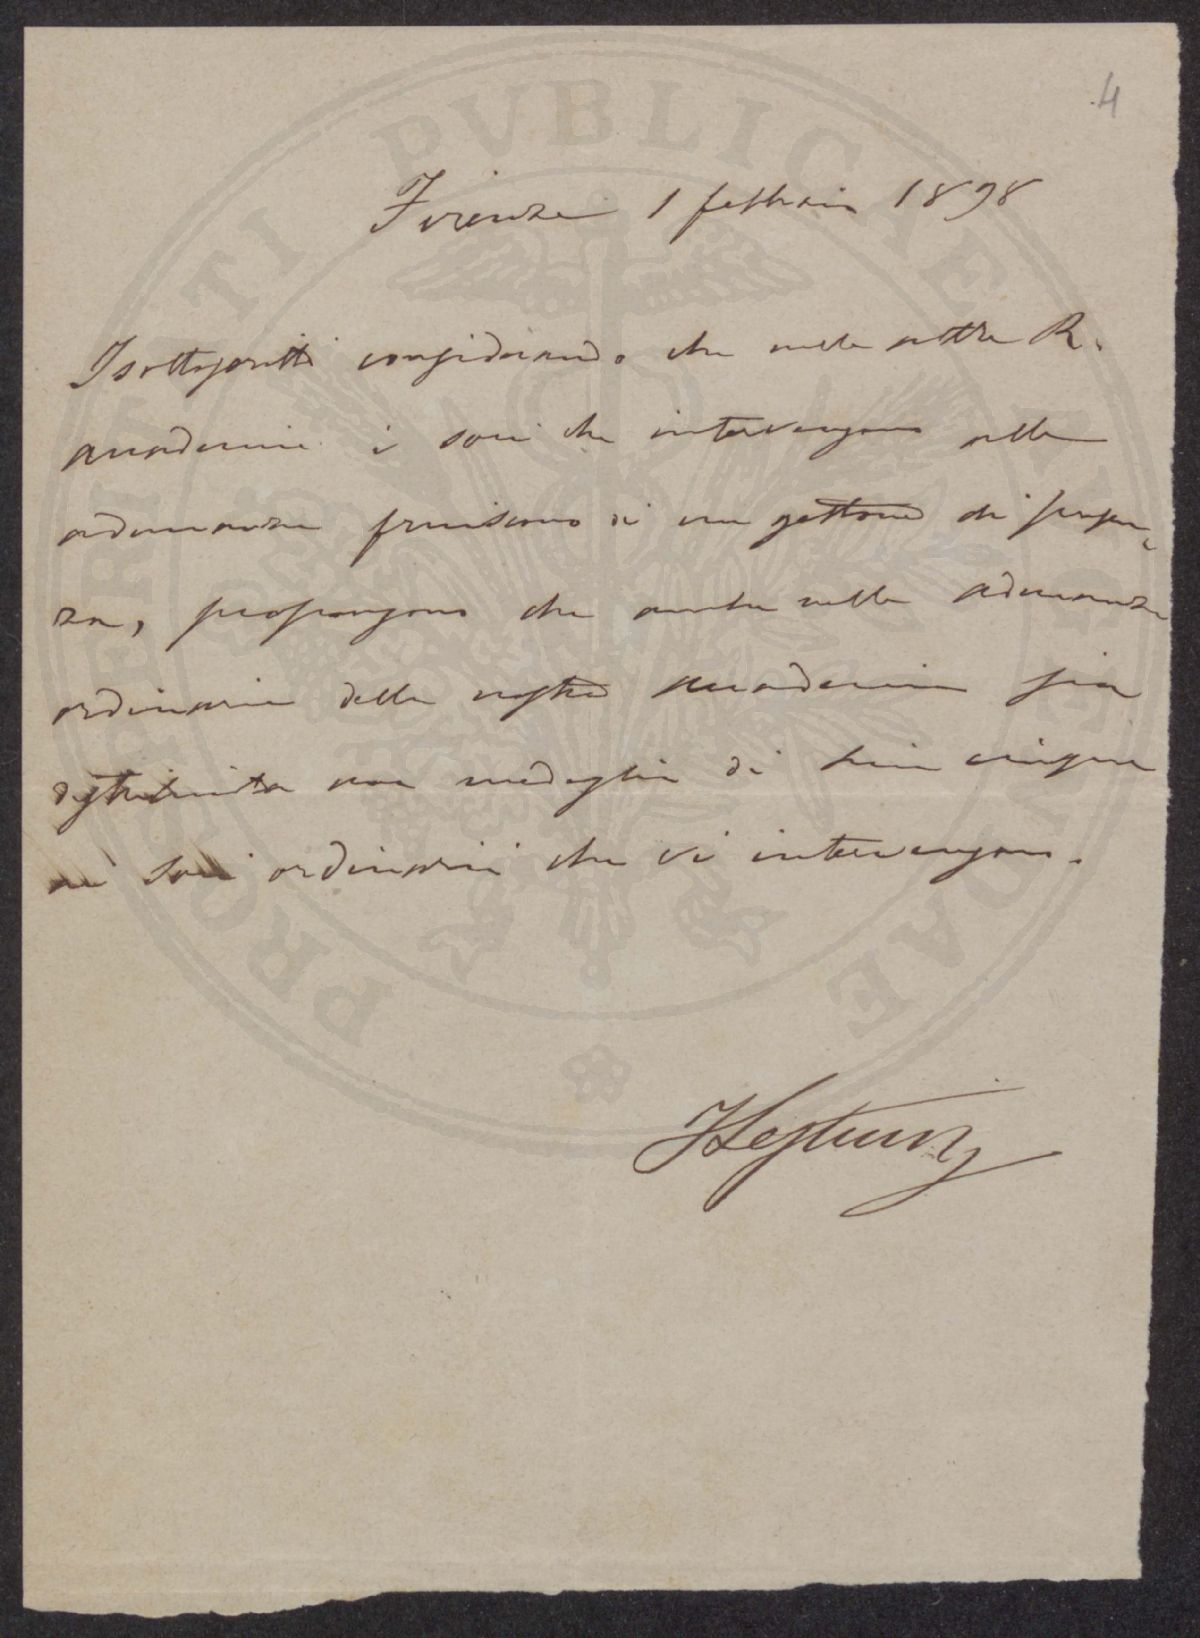 4
Firenze 1 febbraio 1898
I sottoscritti considerando che nelle altre R.
accademie i soci che intervengono alle
adunanze fruiscono di un gettone di presen-
za, propongono che anche nelle adunanze
ordinarie della nostra accademia sia
distribuita una medaglia di lire cinque
ai soci ordinarii che vi intervengono.
PROSPERITATI PVBLICAE AVGENDAE